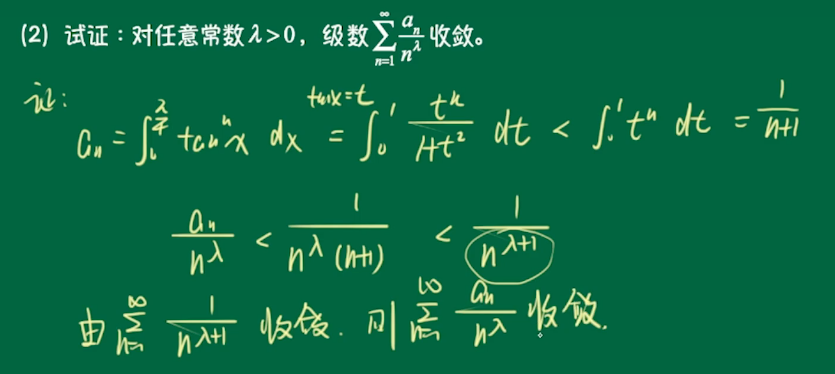 (2) 试证：对任意常数λ>0，级数∑_{n=1}^{∞} a_n/n^λ 收敛。
证：
a_n = ∫_0^{π/4} tan^n x dx \overset{tanx=t}{=} ∫_0^1 t^n/(1+t^2) dt < ∫_0^1 t^n dt = 1/(n+1)
a_n/n^λ < 1/(n^λ(n+1)) < 1/n^{λ+1}
由 ∑_{n=1}^{∞} 1/n^{λ+1} 收敛. 则 ∑_{n=1}^{∞} a_n/n^λ 收敛.